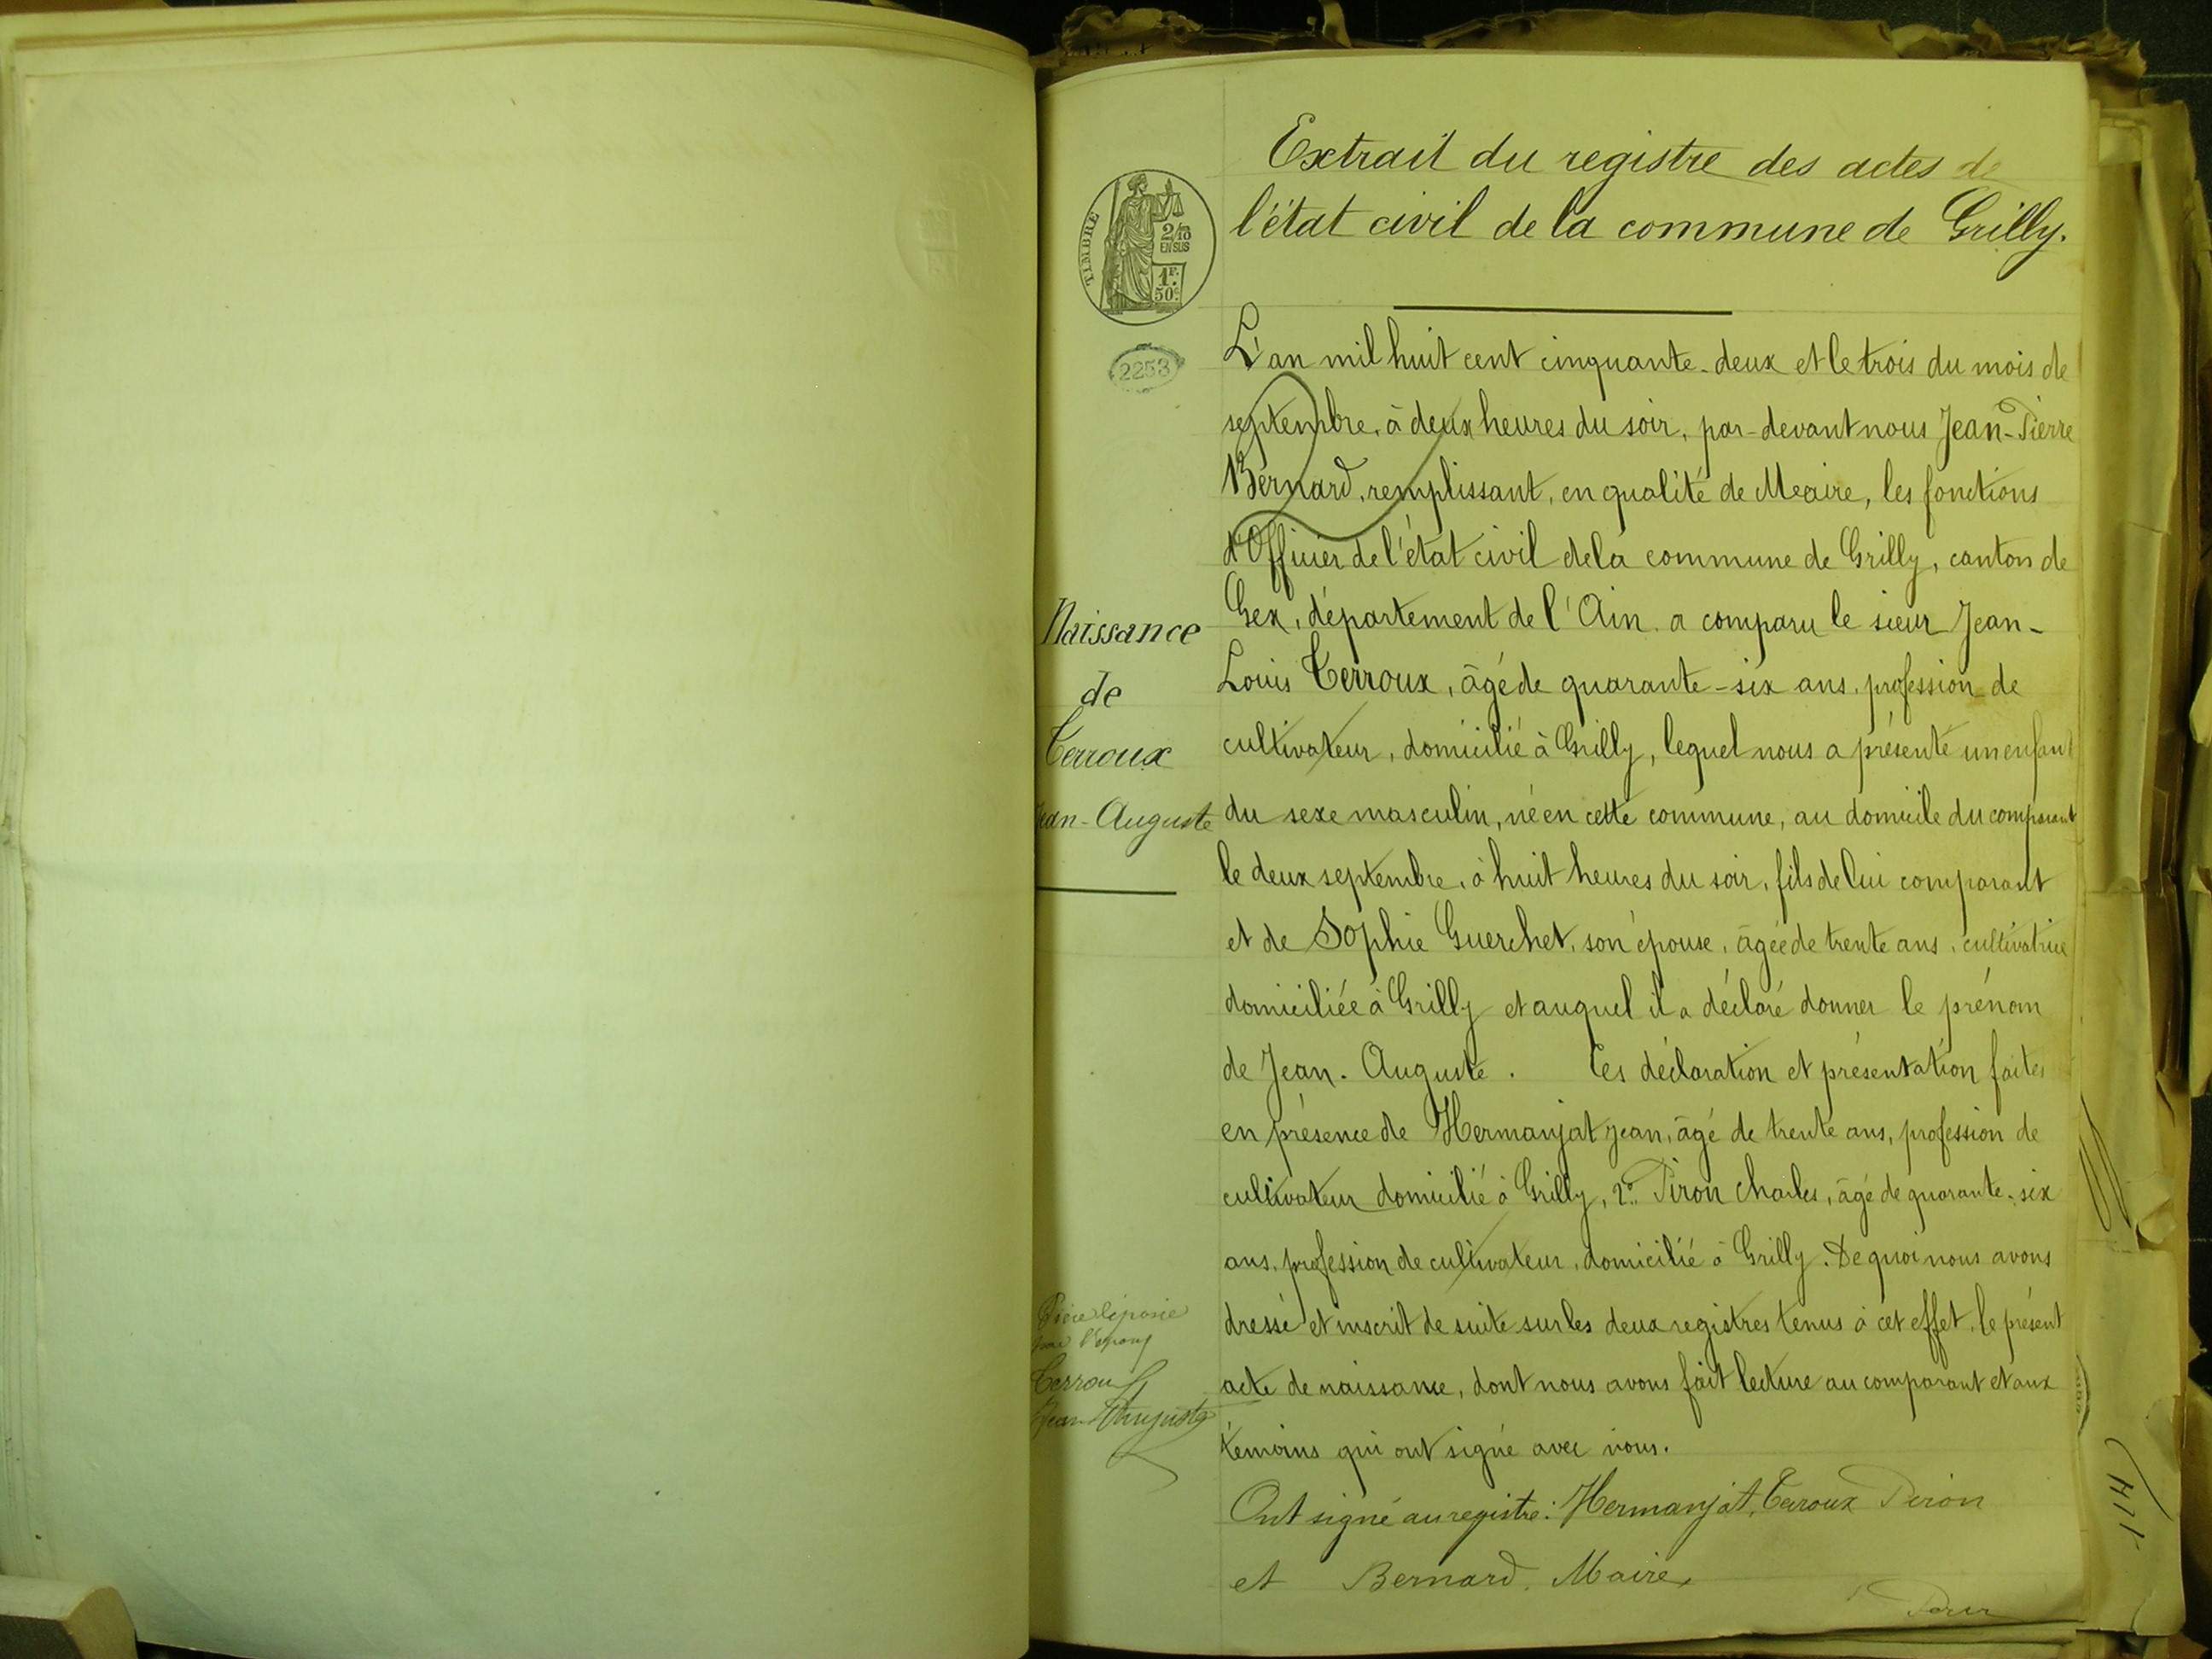 Extrait du registre des actes de
l'état civil de la commune de Grilly.
TIMBRE
2/10
EN SUS
1F.
50c
2253
L'an mil huit cent cinquante-deux et le trois du mois de
septembre, à deux heures du soir, par-devant nous Jean-Pierre
Bernard, remplissant, en qualité de Maire, les fonctions
d'Officier de l'état civil de la commune de Grilly, canton de
Gex, département de l'Ain a comparu le sieur Jean-
Louis Terroux, âgé de quarante-six ans, profession de
cultivateur, domicilié à Grilly, lequel nous a présenté un enfant
du sexe masculin, né en cette commune, au domicile du comparant
le deux septembre, à huit heures du soir, fils de lui comparant
et de Sophie Guerchet, son épouse, âgée de trente ans, cultivatrice
domiciliée à Grilly et auquel il a déclaré donner le prénom
de Jean-Auguste. Ces déclaration et présentation faites
en présence de Hermanjat Jean, âgé de trente ans, profession de
cultivateur domicilié à Grilly, 2° Piron Charles, âgé de quarante-six
ans, profession de cultivateur, domicilié à Grilly. De quoi nous avons
dressé et inscrit de suite sur les deux registres tenus à cet effet, le présent
acte de naissance, dont nous avons fait lecture au comparant et aux
témoins qui ont signé avec nous.
Ont signé au registre: Hermanjat, Terroux Piron
et Bernard, Maire.
Pour
Naissance
de
Terroux
Jean-Auguste
Pièce déposée
par l'époux
Terroux
Jean Auguste